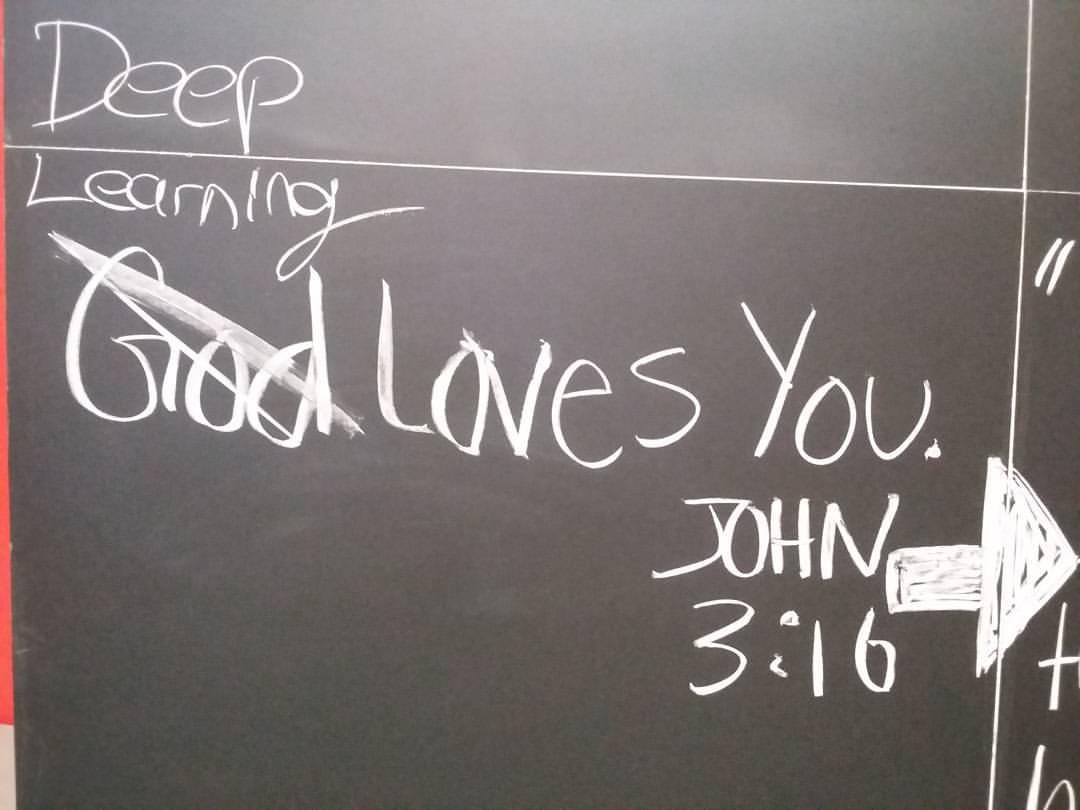 Deep
Learning
God Loves You.
JOHN
3:16
"